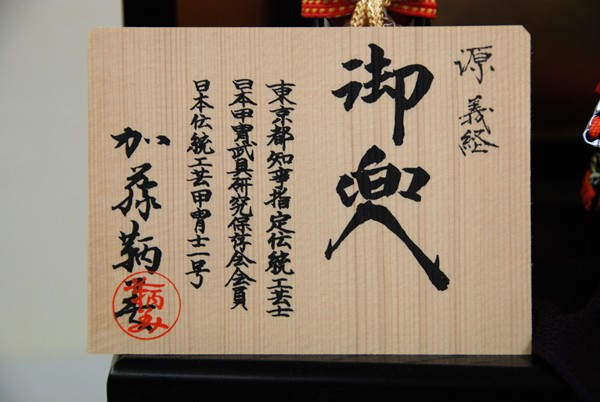 源義経
御兜
東京都知事指定伝統工芸士
日本甲冑武具研究保存会会員
日本伝統工芸甲冑士一号
加藤鞆美
鞆美